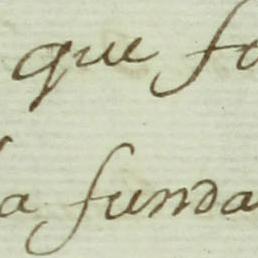 que fo
la funda